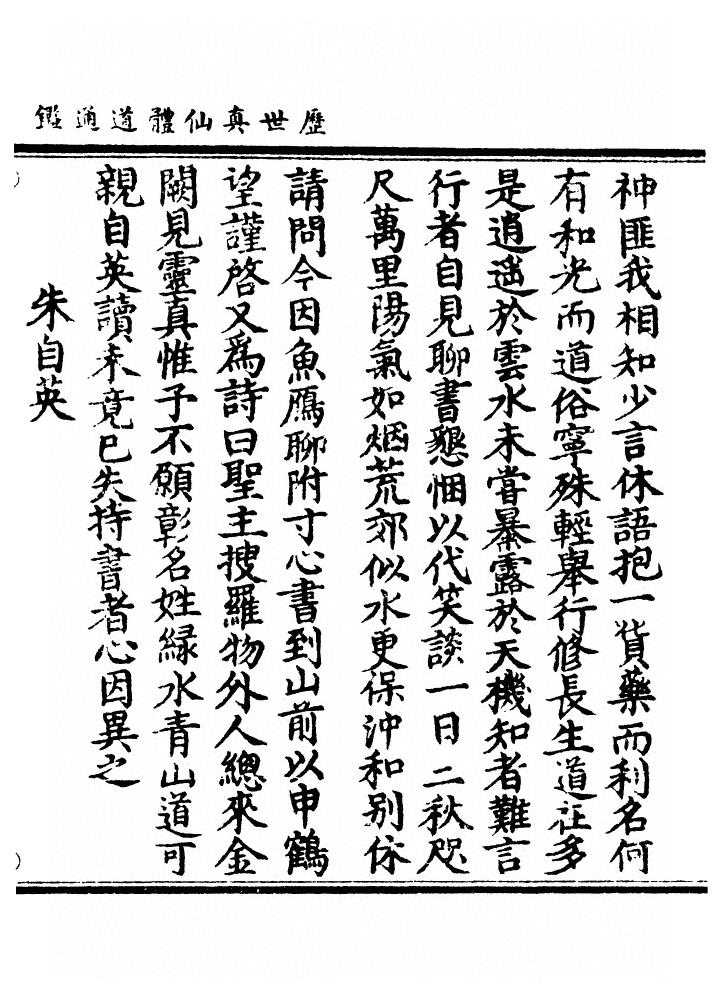 歷世真仙體道通鑑
神匪我相知少言休語抱一貨藥而利名何
有和光而道俗寧殊輕舉行修長生道在多
是逍遥於雲水未嘗暴露於天機知者難言
行者自見聊書懇悃以代笑談一日二秋咫
尺萬里陽氣如烟荒郊似水更保沖和别俟
請問今因魚鴈聊附寸心書到山前以申鶴
望謹啓又爲詩曰聖主搜羅物外人總來金
闕見靈真惟予不願彰名姓緑水青山道可
親自英讀未竟已失持書者心因異之
朱自英